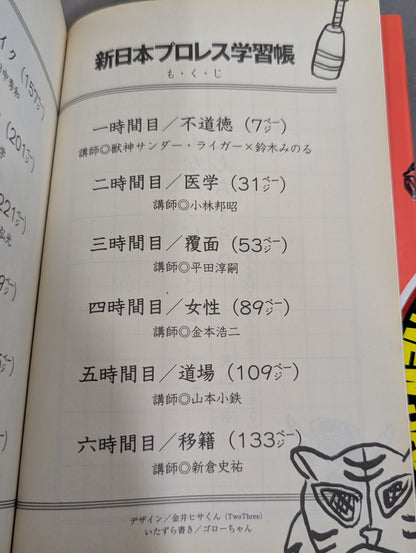 新日本プロレス学習帳
も・く・じ
一時間目／不道徳（7ページ）
講師◎獣神サンダー・ライガー×鈴木みのる
二時間目／医学（31ページ）
講師◎小林邦昭
三時間目／覆面（53ページ）
講師◎平田淳嗣
四時間目／女性（89ページ）
講師◎金本浩二
五時間目／道場（109ページ）
講師◎山本小鉄
六時間目／移籍（133ページ）
講師◎新倉史祐
デザイン／金井ヒサくん（TwoThree）
いたずら書き／ゴローちゃん
イク（157ページ）
（201ページ）